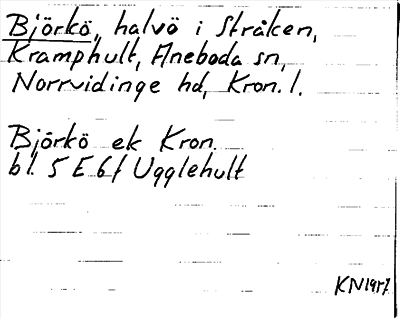 Björkö, halvö i Stråken,
Kramphult, Aneboda sn,
Norrvidinge hd, Kron. l.
Björkö ek Kron.
bl. 5 E 6 f Ugglehult
KN